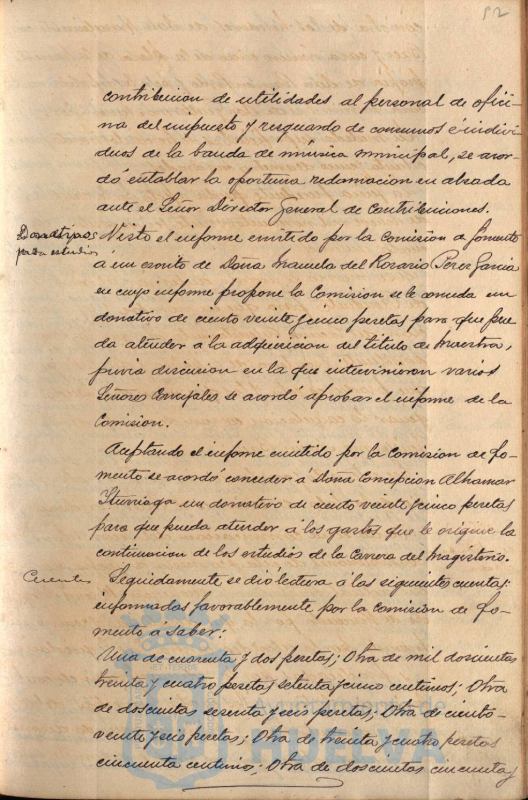 52
contribucion de utilidades al personal de ofici-
na del impuesto y resguardo de consumos é indivi-
duos de la banda de música municipal, se acor-
dó entablar la oportuna reclamacion en alzada
ante el Señor Director General de Contribuciones.
Donativos
para estudios
Visto el informe emitido por la Comision de Fomento
á un escrito de Doña Manuela del Rosario Perez Garcia
en cuyo informe propone la Comision se le conceda un
donativo de ciento veinte y cinco pesetas para que pue-
da atender á la adquisicion del titulo de Maestra,
previa discusion en la que intervinieron varios
Señores Concejales se acordó aprobar el informe de la
Comision.
Aceptando el informe emitido por la Comision de Fo-
mento se acordó conceder á Doña Concepcion Alhamar
Yturriaga un donativo de ciento veinte y cinco pesetas
para que pueda atender á los gastos que le origine la
continuacion de los estudios de la Carrera del Magisterio.
Cuentas
Seguidamente se dió lectura á las siguientes cuentas
informadas favorablemente por la Comision de Fo-
mento á saber:
Una de cuarenta y dos pesetas; Otra de mil doscientas
treinta y cuatro pesetas setenta y cinco centimos; Otra
de doscientas sesenta y seis pesetas; Otra de ciento
veinte y seis pesetas; Otra de treinta y cuatro pesetas
cincuenta centimos; Otra de doscientas cincuenta y
Ayuntamiento de
HUELVA